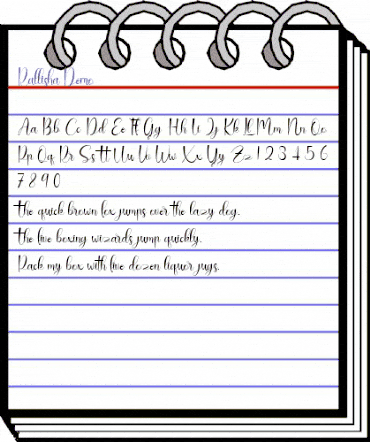 Rallisha Demo
Aa Bb Cc Dd Ee Ff Gg Hh Ii Jj Kk Ll Mm Nn Oo
Pp Qq Rr Ss Tt Uu Vv Ww Xx Yy Zz 1 2 3 4 5 6
7 8 9 0
The quick brown fox jumps over the lazy dog.
The five boxing wizards jump quickly.
Pack my box with five dozen liquor jugs.